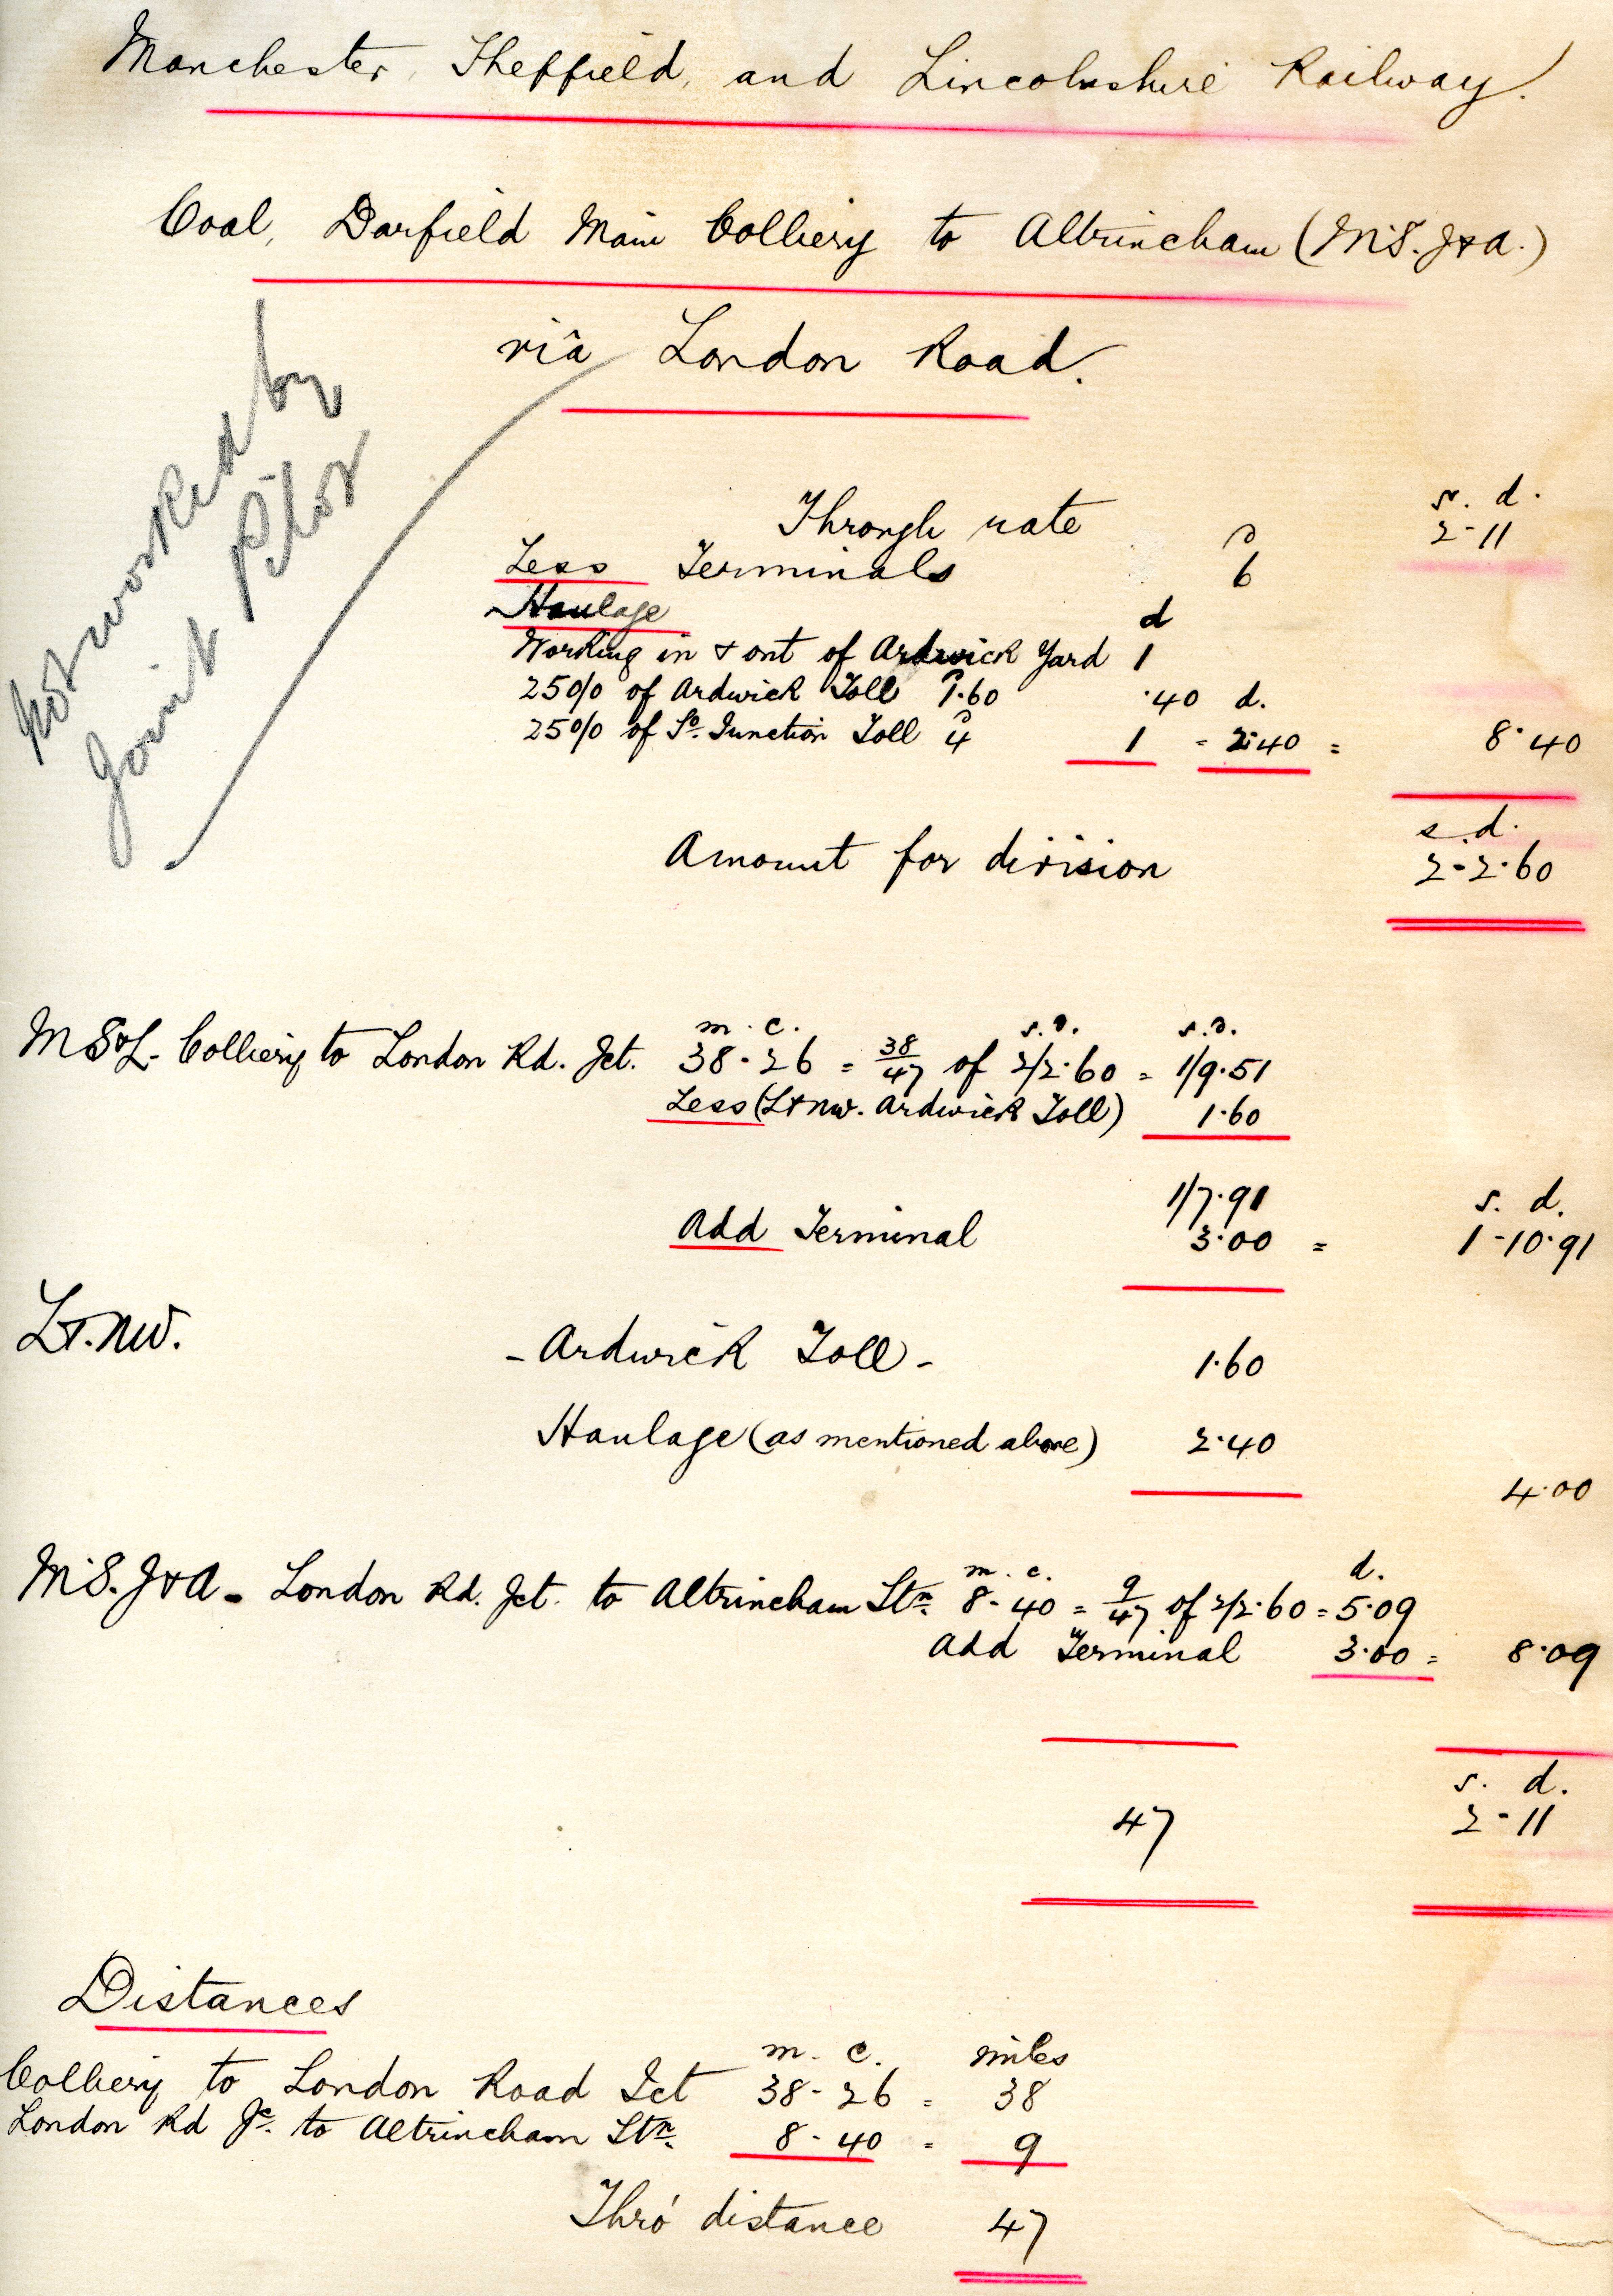 Manchester, Sheffield, and Lincolnshire Railway.
Coal, Darfield Main Colliery to Altrincham (M.S.J&A.)
viâ London Road.
Not worked by
Joint Pilot
s. d.
Through rate 2-11
d
Less Terminals 6
Haulage d
Working in & out of Ardwick Yard 1
25% of Ardwick Toll 1.60 .40 d.
25% of So. Junction Toll 4 1 = 2.40 = 8.40
s. d.
Amount for division 2-2.60
m. c. s. d. s. d.
MS&L. Colliery to London Rd. Jct. 38-26 = 38/47 of 2/2.60 = 1/9.51
Less (L&NW. Ardwick Toll) 1.60
1/7.91 s. d.
Add Terminal 3.00 = 1-10.91
L&NW. - Ardwick Toll - 1.60
Haulage (as mentioned above) 2.40
4.00
m. c. d.
M.S.J&A - London Rd. Jct. to Altrincham Stn. 8-40 = 9/47 of 2/2.60 = 5.09
Add Terminal 3.00 = 8.09
s. d.
47 2-11
Distances
m. c. miles
Colliery to London Road Jct 38-26 = 38
London Rd Jc. to Altrincham Stn. 8-40 = 9
Thro' distance 47